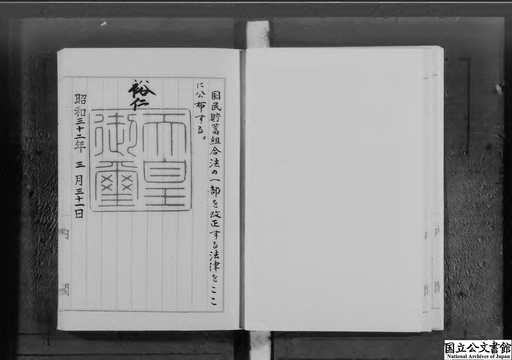 国民貯蓄組合法の一部を改正する法律をここ
に公布する。
裕仁
天皇
御璽
昭和三十二年三月三十一日
国立公文書館
National Archives of Japan